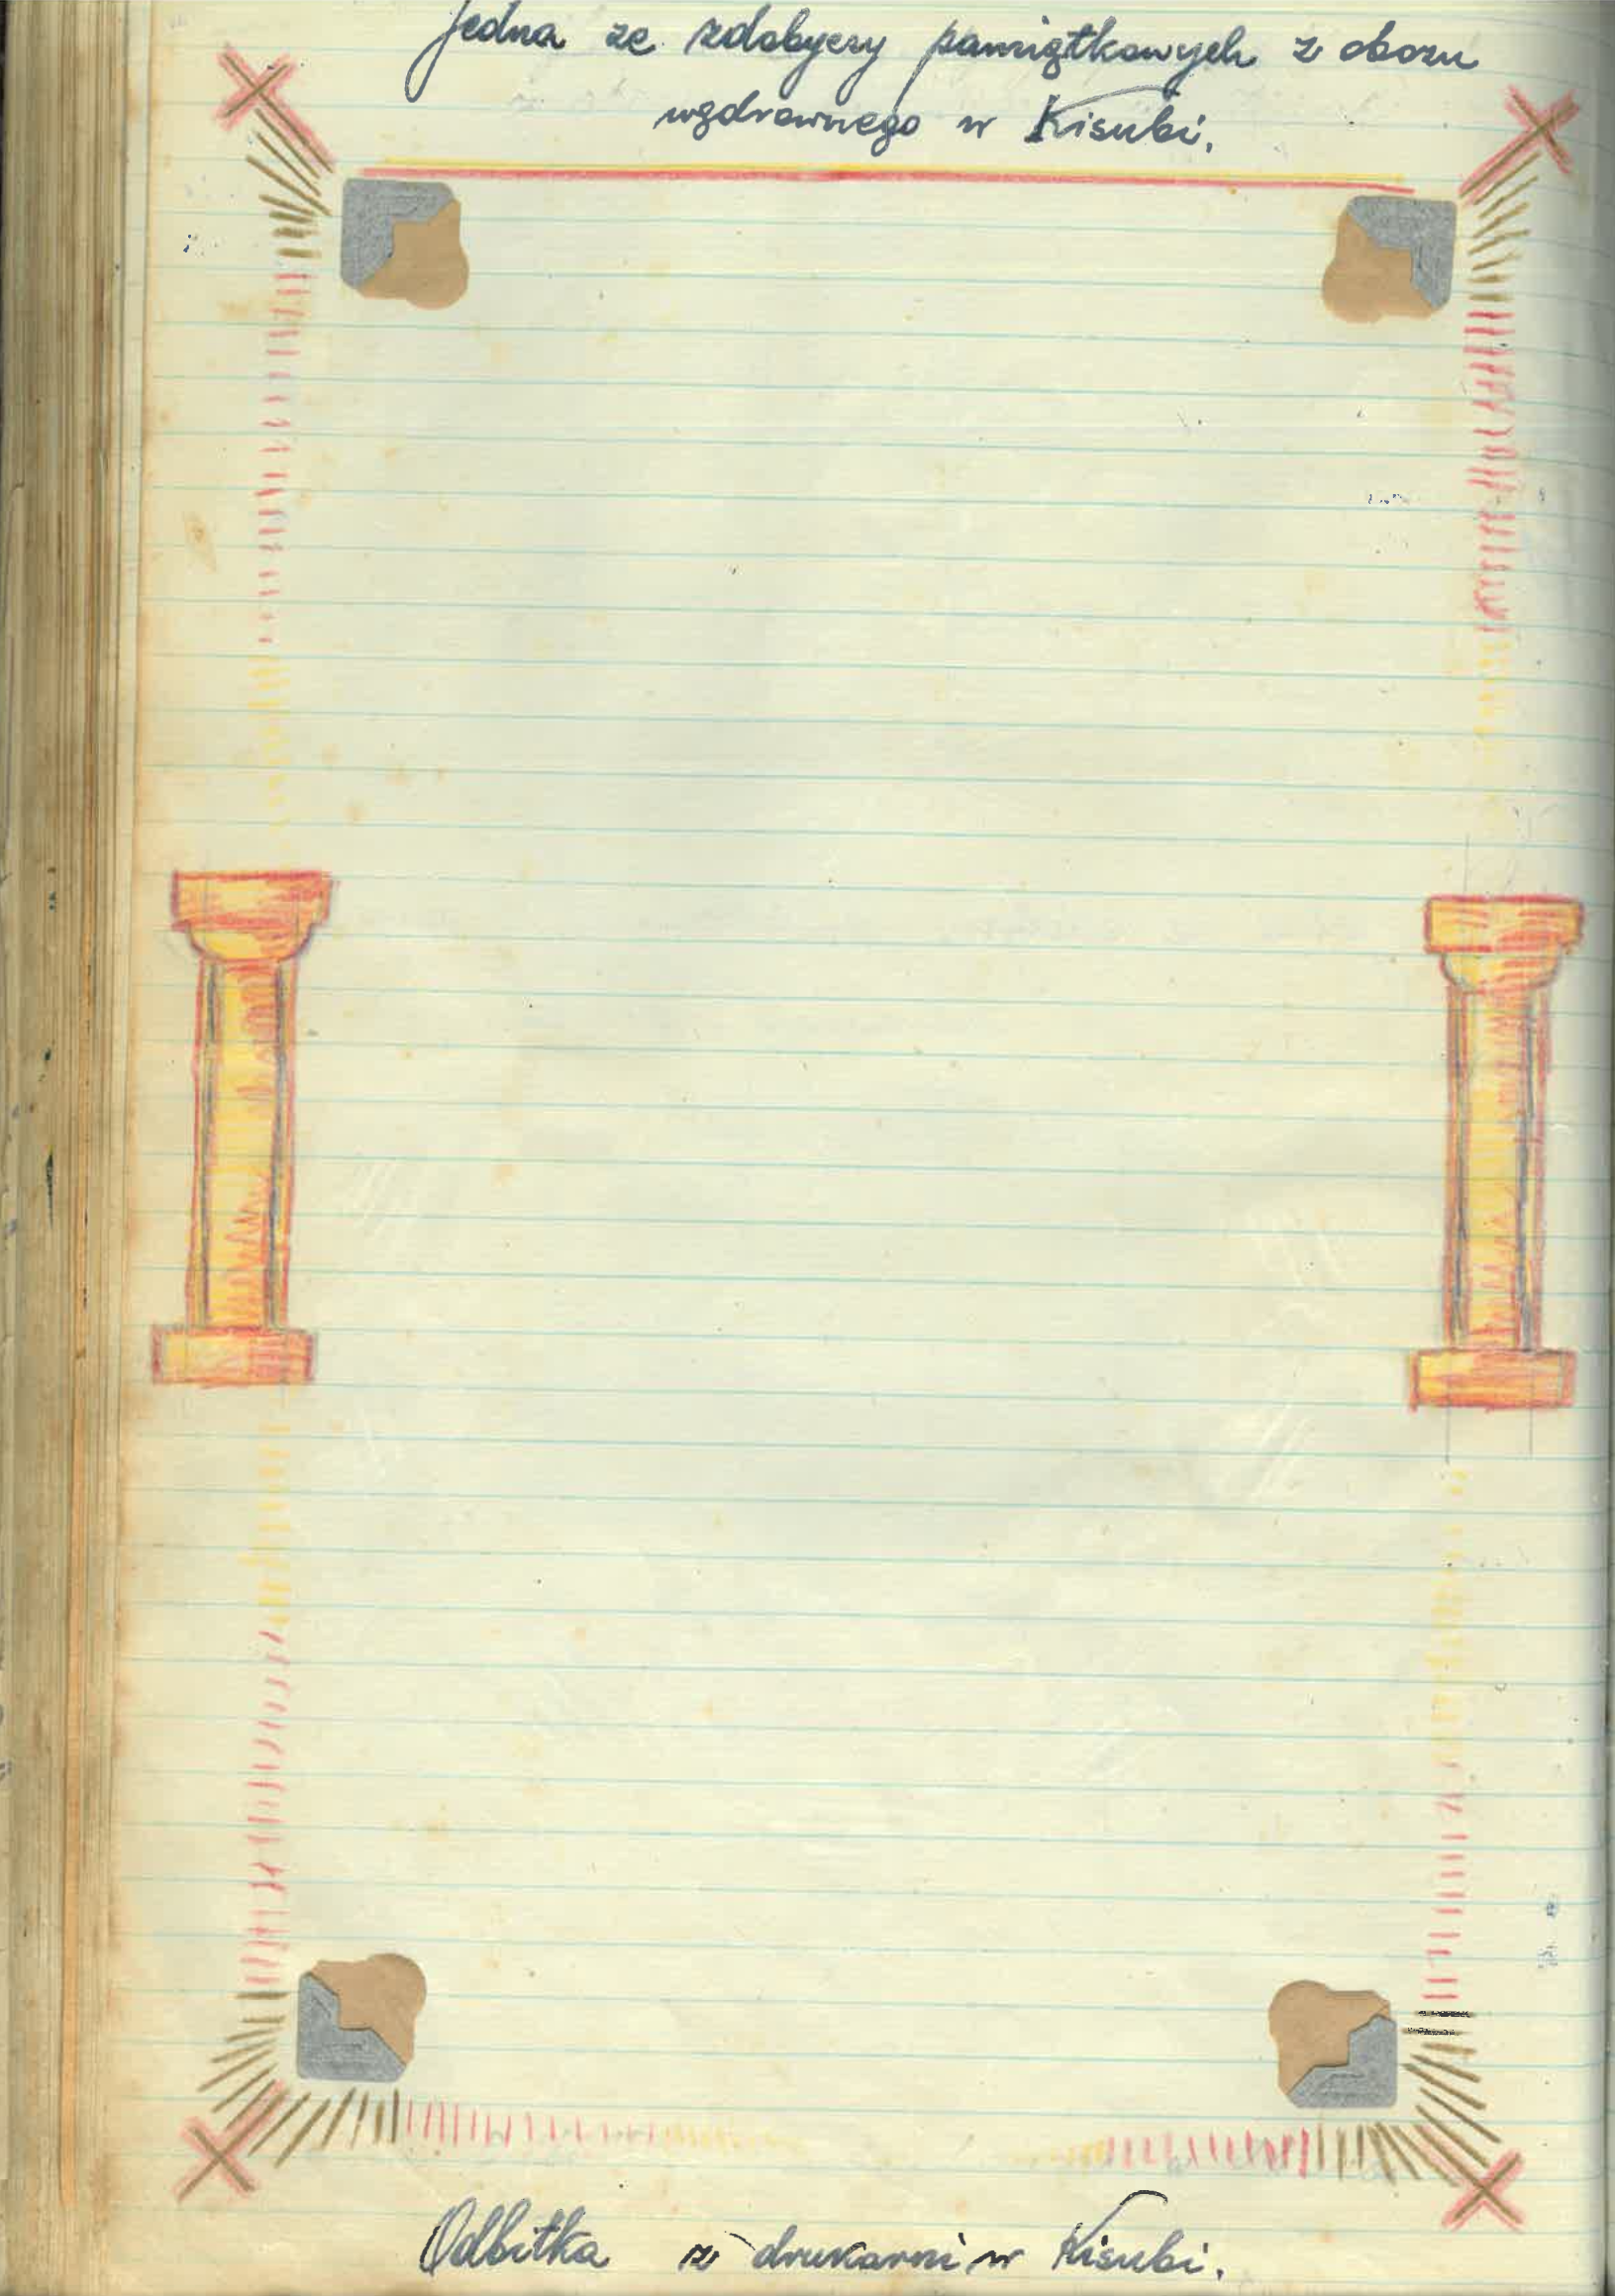 Jedna ze zdobyczy pamiątkowych z obozu
wędrownego w Kisubi.
Odbitka z drukarni w Kisubi.